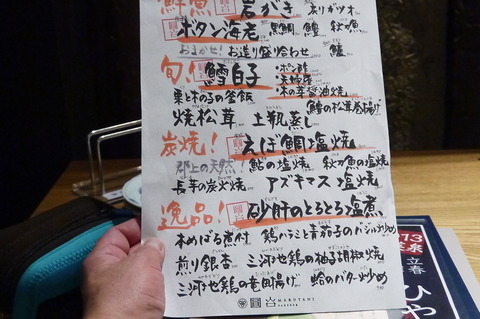 鮮魚 岩がき 戻りガツオ
ボタン海老 黒鯛 鱧 秋刀魚
おまかせ! お造り盛り合わせ 鱧
旬、伍 鱈白子 ・ポン酢
・天婦羅
・木の芽醤油焼
栗と木の子の釜飯 鱧の松茸巻揚げ
焼松茸 土瓶蒸し
炭焼! えぼ鯛塩焼
郡上の天然! 鮎の塩焼 秋刀魚の塩焼
長芋の炭火焼 アズキマス 塩焼
逸品! 砂肝のとろとろ塩煮
本めばる煮付 鶏ハラミと青茄子のバジル炒め
煎り銀杏 三河地鶏の柚子胡椒焼
三河地鶏の竜田揚げ 蛤のバター炒め
MARUTANI
立春
ひや